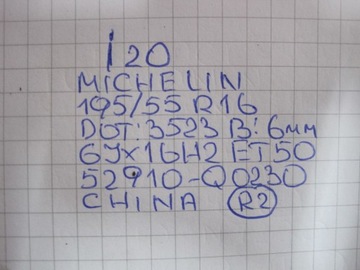 i20
MICHELIN
195/55 R16
DOT: 3523 B: 6мм
6Jx16H2 ET50
52910-Q0230
CHINA R2